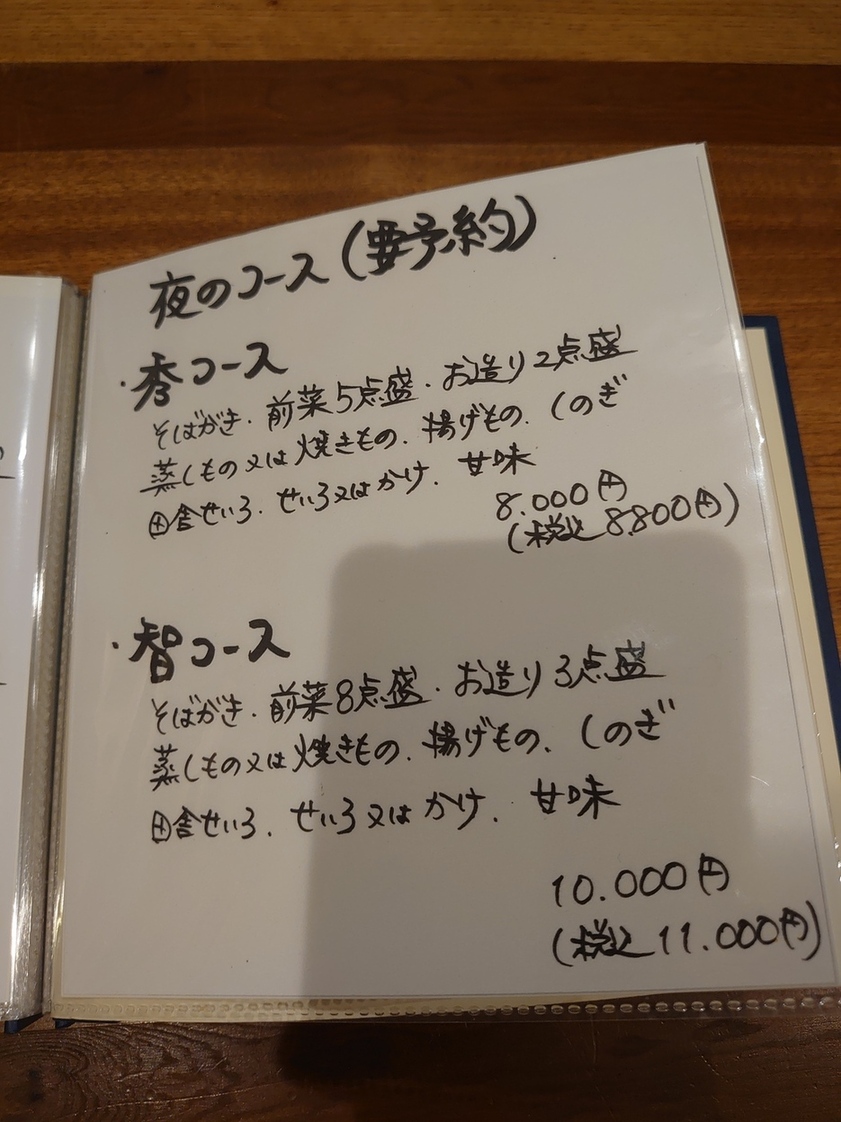 夜のコース(要予約)
・秀コース
そばがき・前菜5点盛・お造り2点盛
蒸しもの又は焼きもの、揚げもの、しのぎ
田舎せいろ、せいろ又はかけ、甘味
8.000円
(税込8.800円)
・智コース
そばがき・前菜8点盛・お造り3点盛
蒸しもの又は焼きもの、揚げもの、しのぎ
田舎せいろ、せいろ又はかけ、甘味
10.000円
(税込11.000円)